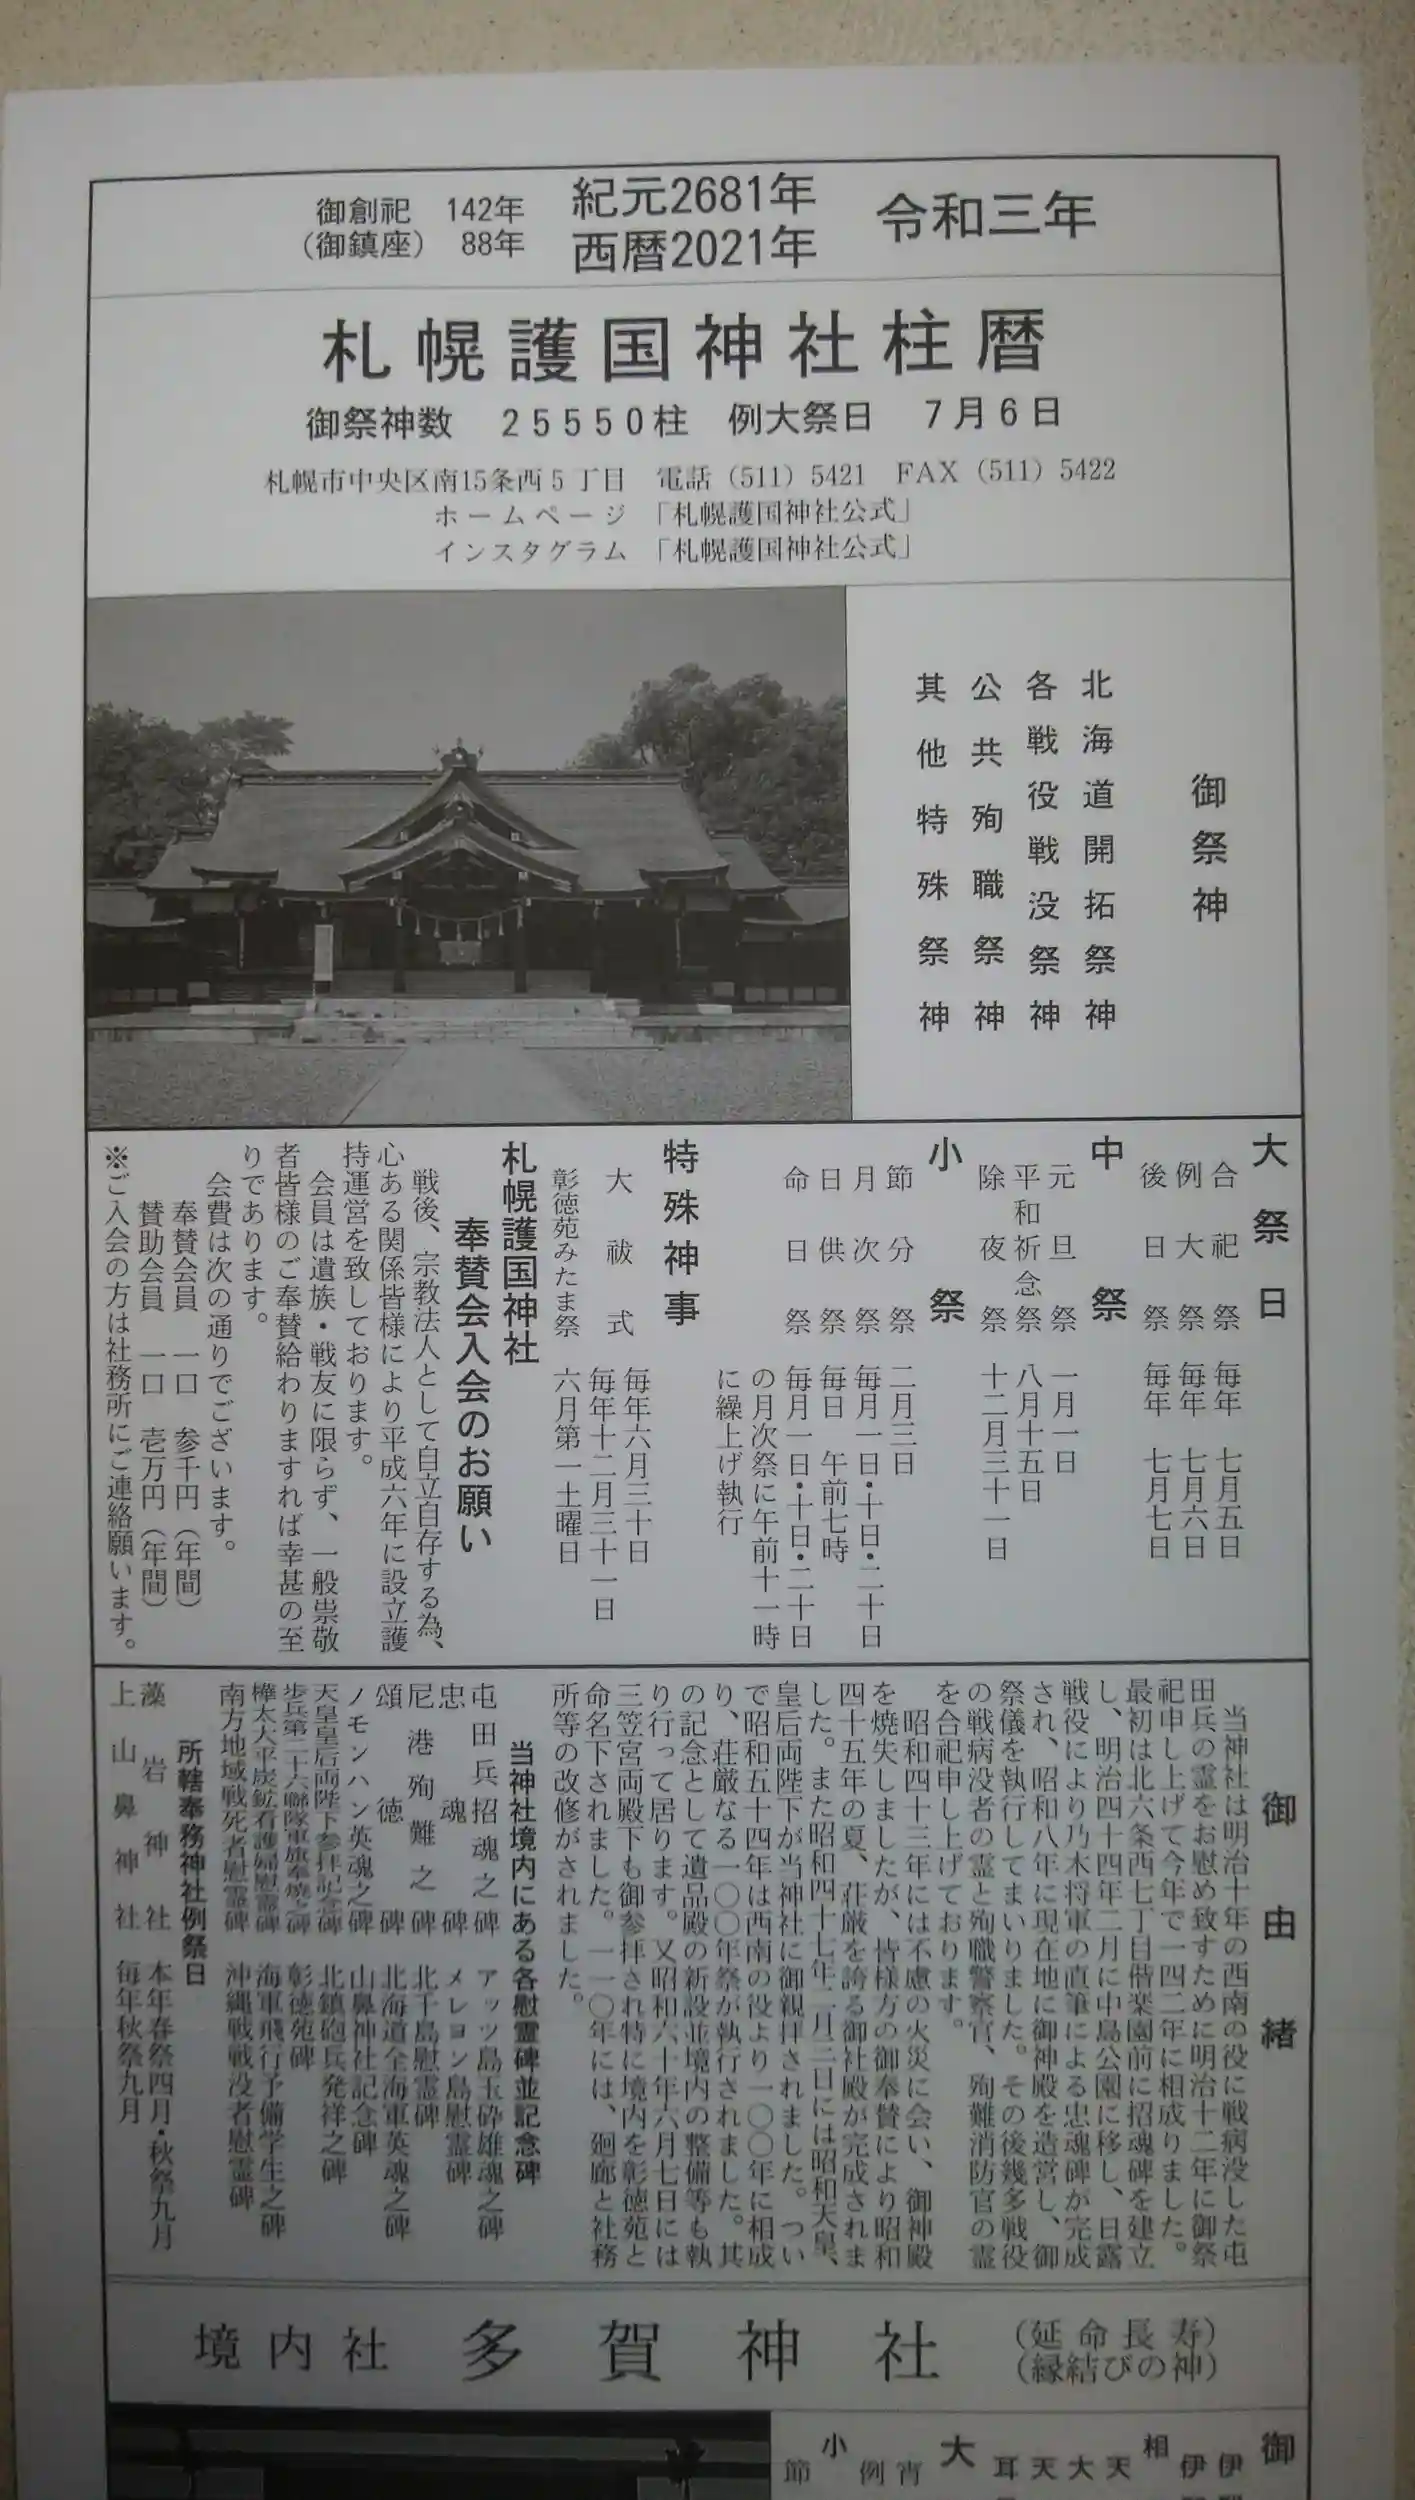 令和三年
紀元2681年
西暦2021年
御創祀 142年
(御鎮座) 88年
札幌護国神社柱暦
御祭神数 25550柱 例大祭日 7月6日
札幌市中央区南15条西5丁目 電話(511)5421 FAX(511)5422
ホームページ 「札幌護国神社公式」
インスタグラム 「札幌護国神社公式」
御祭神
北海道開拓祭神
各戦役戦没祭神
公共殉職祭神
其他特殊祭神
大祭日
合祀祭 毎年 七月五日
例大祭 毎年 七月六日
後日祭 毎年 七月七日
中祭
元旦祭 一月一日
平和祈念祭 八月十五日
除夜祭 十二月三十一日
小祭
節分祭 二月三日
月次祭 毎月一日・十日・二十日
日供祭 毎日 午前七時
命日祭 毎月一日・十日・二十日
の月次祭に午前十一時
に繰上げ執行
特殊神事
大祓式 毎年六月三十日
毎年十二月三十一日
彰徳苑みたま祭 六月第一土曜日
札幌護国神社
奉賛会入会のお願い
戦後、宗教法人として自立自存する為、
心ある関係皆様により平成六年に設立護
持運営を致しております。
会員は遺族・戦友に限らず、一般崇敬
者皆様のご奉賛給わりますれば幸甚の至
りであります。
会費は次の通りでございます。
奉賛会員 一口 参千円(年間)
賛助会員 一口 壱万円(年間)
※ご入会の方は社務所にご連絡願います。
御由緒
当神社は明治十年の西南の役に戦病没した屯
田兵の霊をお慰め致すために明治十二年に御祭
祀申し上げて今年で一四二年に相成りました。
最初は北六条西七丁目偕楽園前に招魂碑を建立
し、明治四十四年二月に中島公園に移し、日露
戦役により乃木将軍の直筆による忠魂碑が完成
され、昭和八年に現在地に御神殿を造営し、御
祭儀を執行してまいりました。その後幾多戦役
の戦病没者の霊と殉職警察官、殉難消防官の霊
を合祀申し上げております。
昭和四十三年には不慮の火災に会い、御神殿
を焼失しましたが、皆様方の御奉賛により昭和
四十五年の夏、荘厳を誇る御社殿が完成されま
した。また昭和四十七年二月三日には昭和天皇、
皇后両陛下が当神社に御親拝されました。つい
で昭和五十四年は西南の役より一〇〇年に相成
り、荘厳なる一〇〇年祭が執行されました。其
の記念として遺品殿の新設並境内の整備等も執
り行って居ります。又昭和六十年六月七日には
三笠宮両殿下も御参拝され特に境内を彰徳苑と
命名下されました。一一〇年には、廻廊と社務
所等の改修がされました。
当神社境内にある各慰霊碑並記念碑
屯田兵招魂之碑 アッツ島玉砕雄魂之碑
忠魂碑 メレヨン島慰霊碑
尼港殉難之碑 北千島慰霊碑
頌徳碑 北海道全海軍英魂之碑
ノモンハン英魂之碑 山鼻神社記念碑
天皇皇后両陛下参拝記念碑 北鎮砲兵発祥之碑
歩兵第二十六聯隊軍旗奉焼之碑 彰徳苑碑
樺太大平炭鉱看護婦慰霊碑 海軍飛行予備学生之碑
南方地域戦死者慰霊碑 沖縄戦戦没者慰霊碑
所轄奉務神社例祭日
藻岩神社 本年春祭四月・秋祭九月
上山鼻神社 毎年秋祭九月
境内社 多賀神社 (延命長寿)
(縁結びの神)
御
伊
伊
相
天
大
天
耳
大
宵
例
小
節